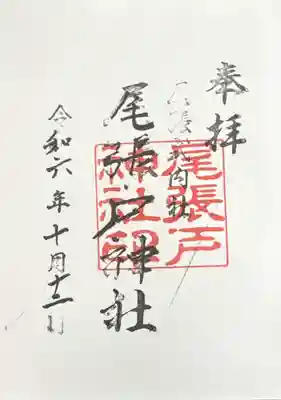 奉拝
式内社
尾張戸神社
令和六年十月
尾張戸
神社印